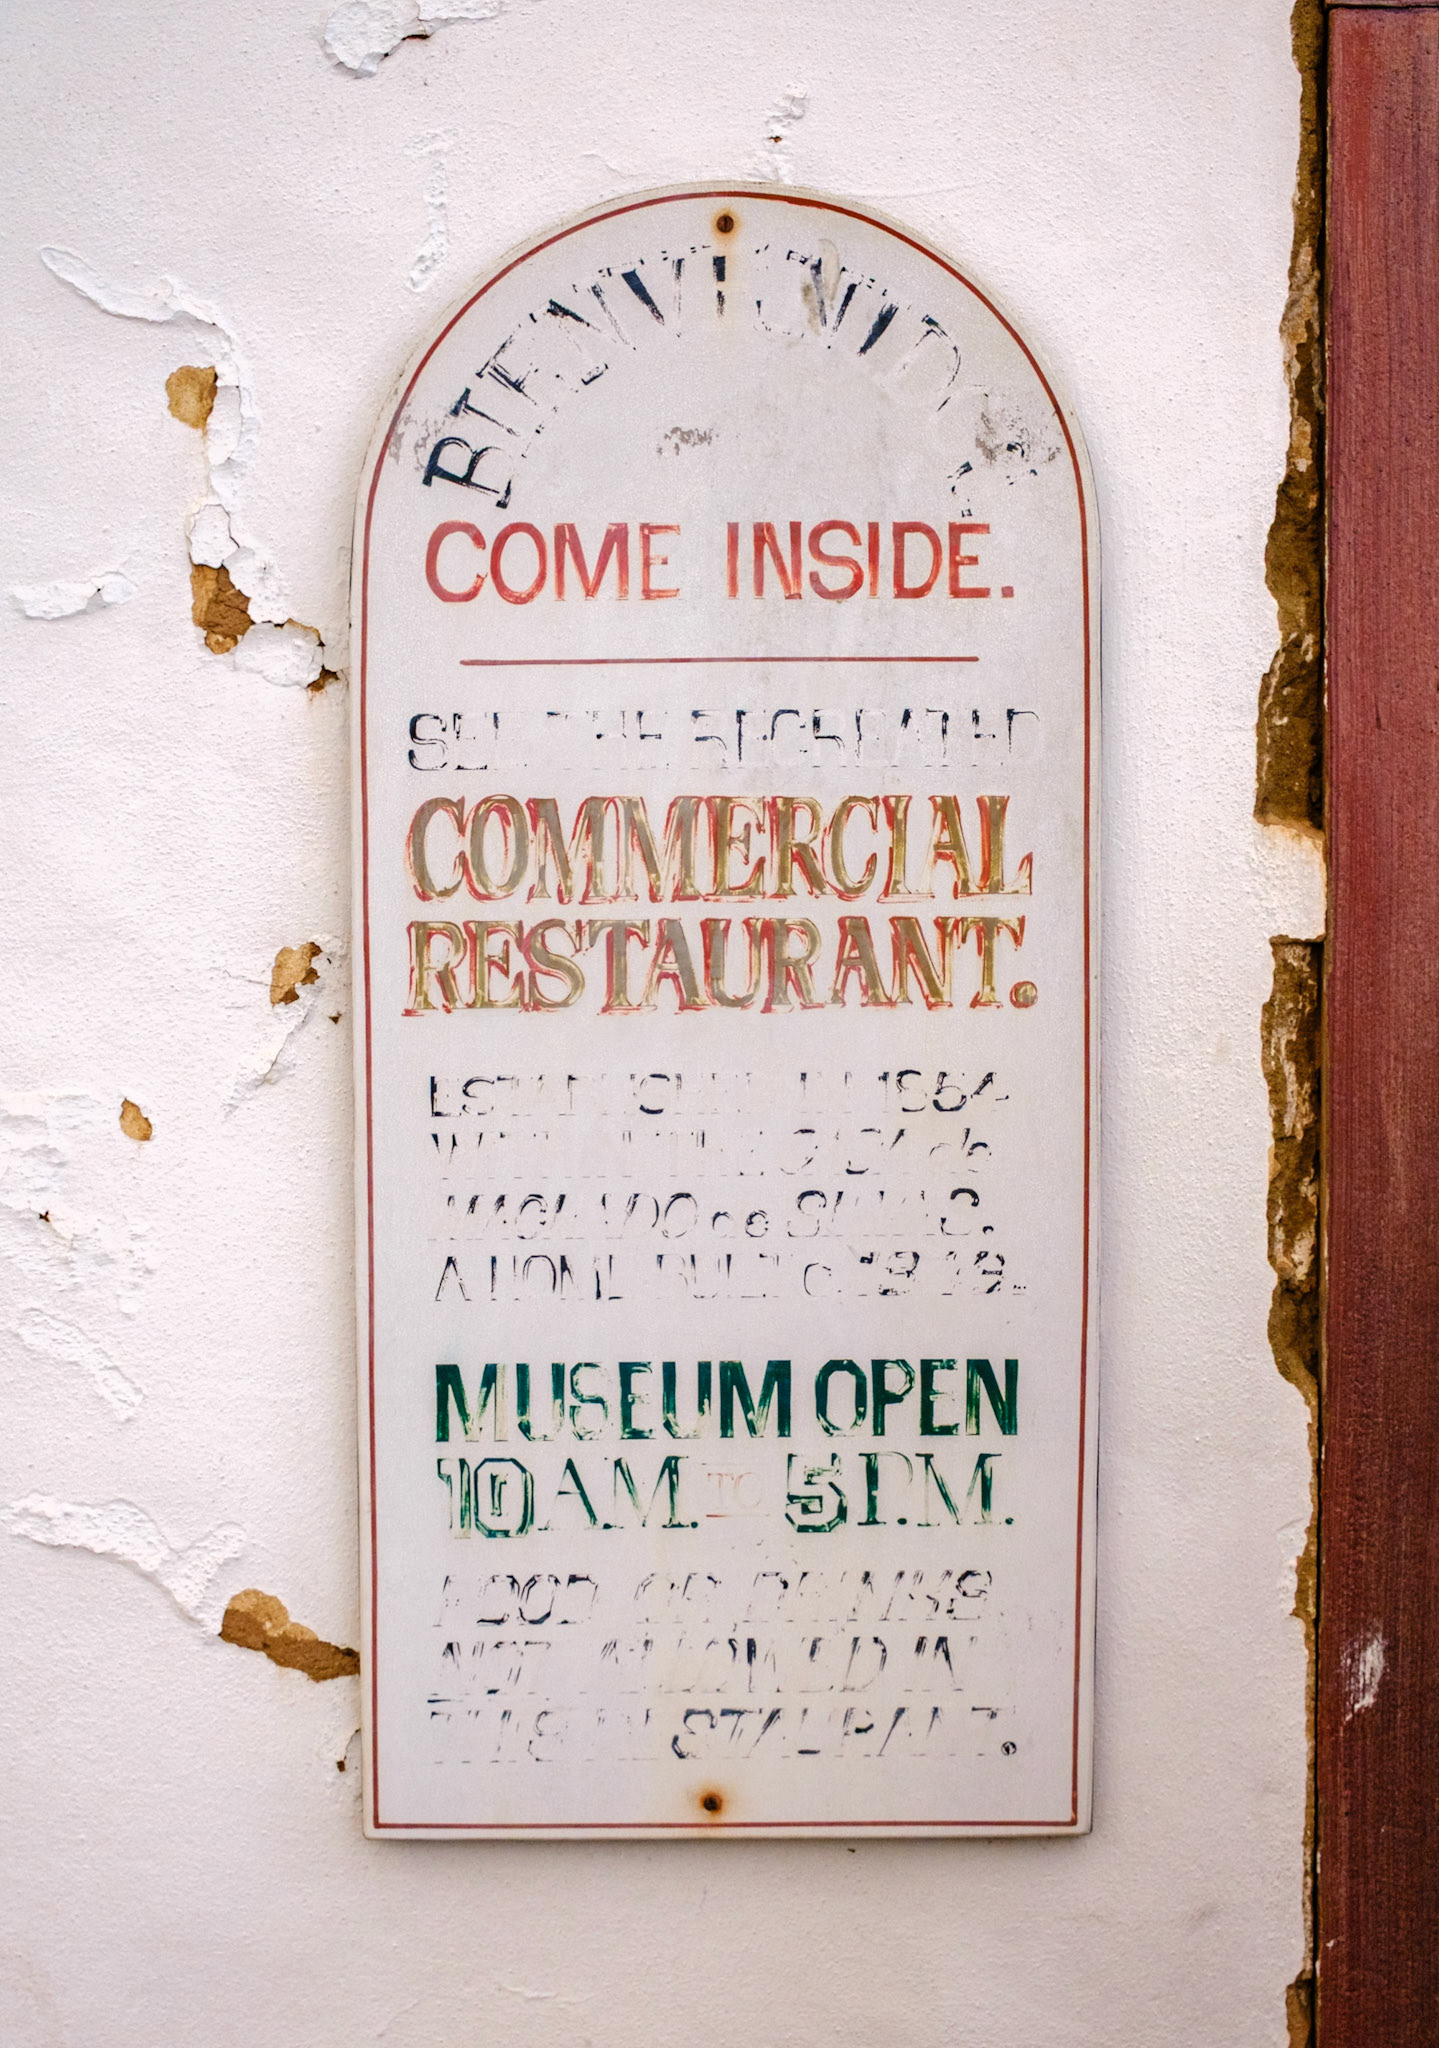 BIENVENIDOS
COME INSIDE.
SEE THE RECREATED
COMMERCIAL
RESTAURANT.
ESTABLISHED IN 1854
WITHIN THE CASA de
MACHADO de SILVAS.
A HOME BUILT
MUSEUM OPEN
10 A.M. TO 5 P.M.
FOOD OR DRINKS
NOT ALLOWED IN
THIS RESTAURANT.